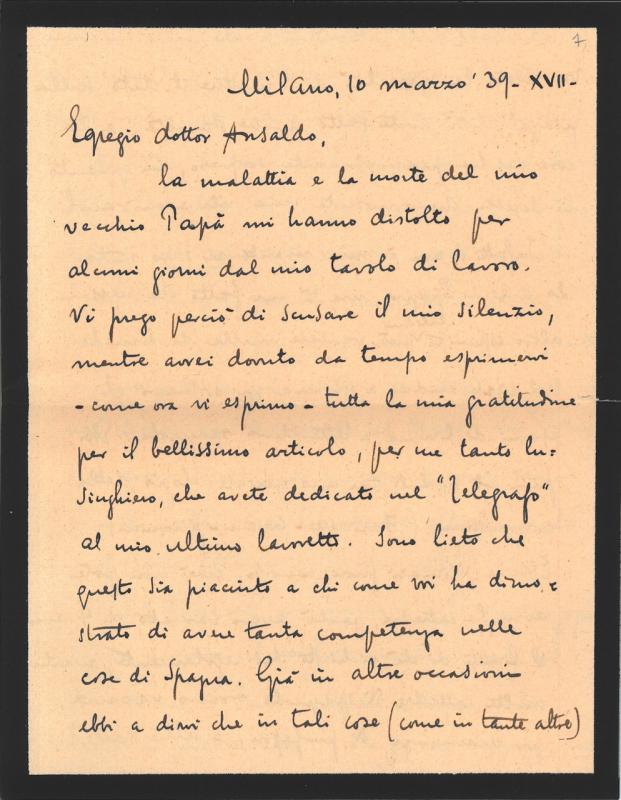 7
Milano, 10 marzo '39 - XVII -
Egregio dottor Ansaldo,
la malattia e la morte del mio
vecchio Papà mi hanno distolto per
alcuni giorni dal mio tavolo di lavoro.
Vi prego perciò di scusare il mio silenzio,
mentre avrei dovuto da tempo esprimervi
- come ora vi esprimo - tutta la mia gratitudine
per il bellissimo articolo, per me tanto lu=
singhiero, che avete dedicato nel "Telegrafo"
al mio ultimo lavoretto. Sono lieto che
questo sia piaciuto a chi come voi ha dimo=
strato di avere tanta competenza nelle
cose di Spagna. Già in altre occasioni
ebbi a dirvi che in tali cose (come in tante altre)